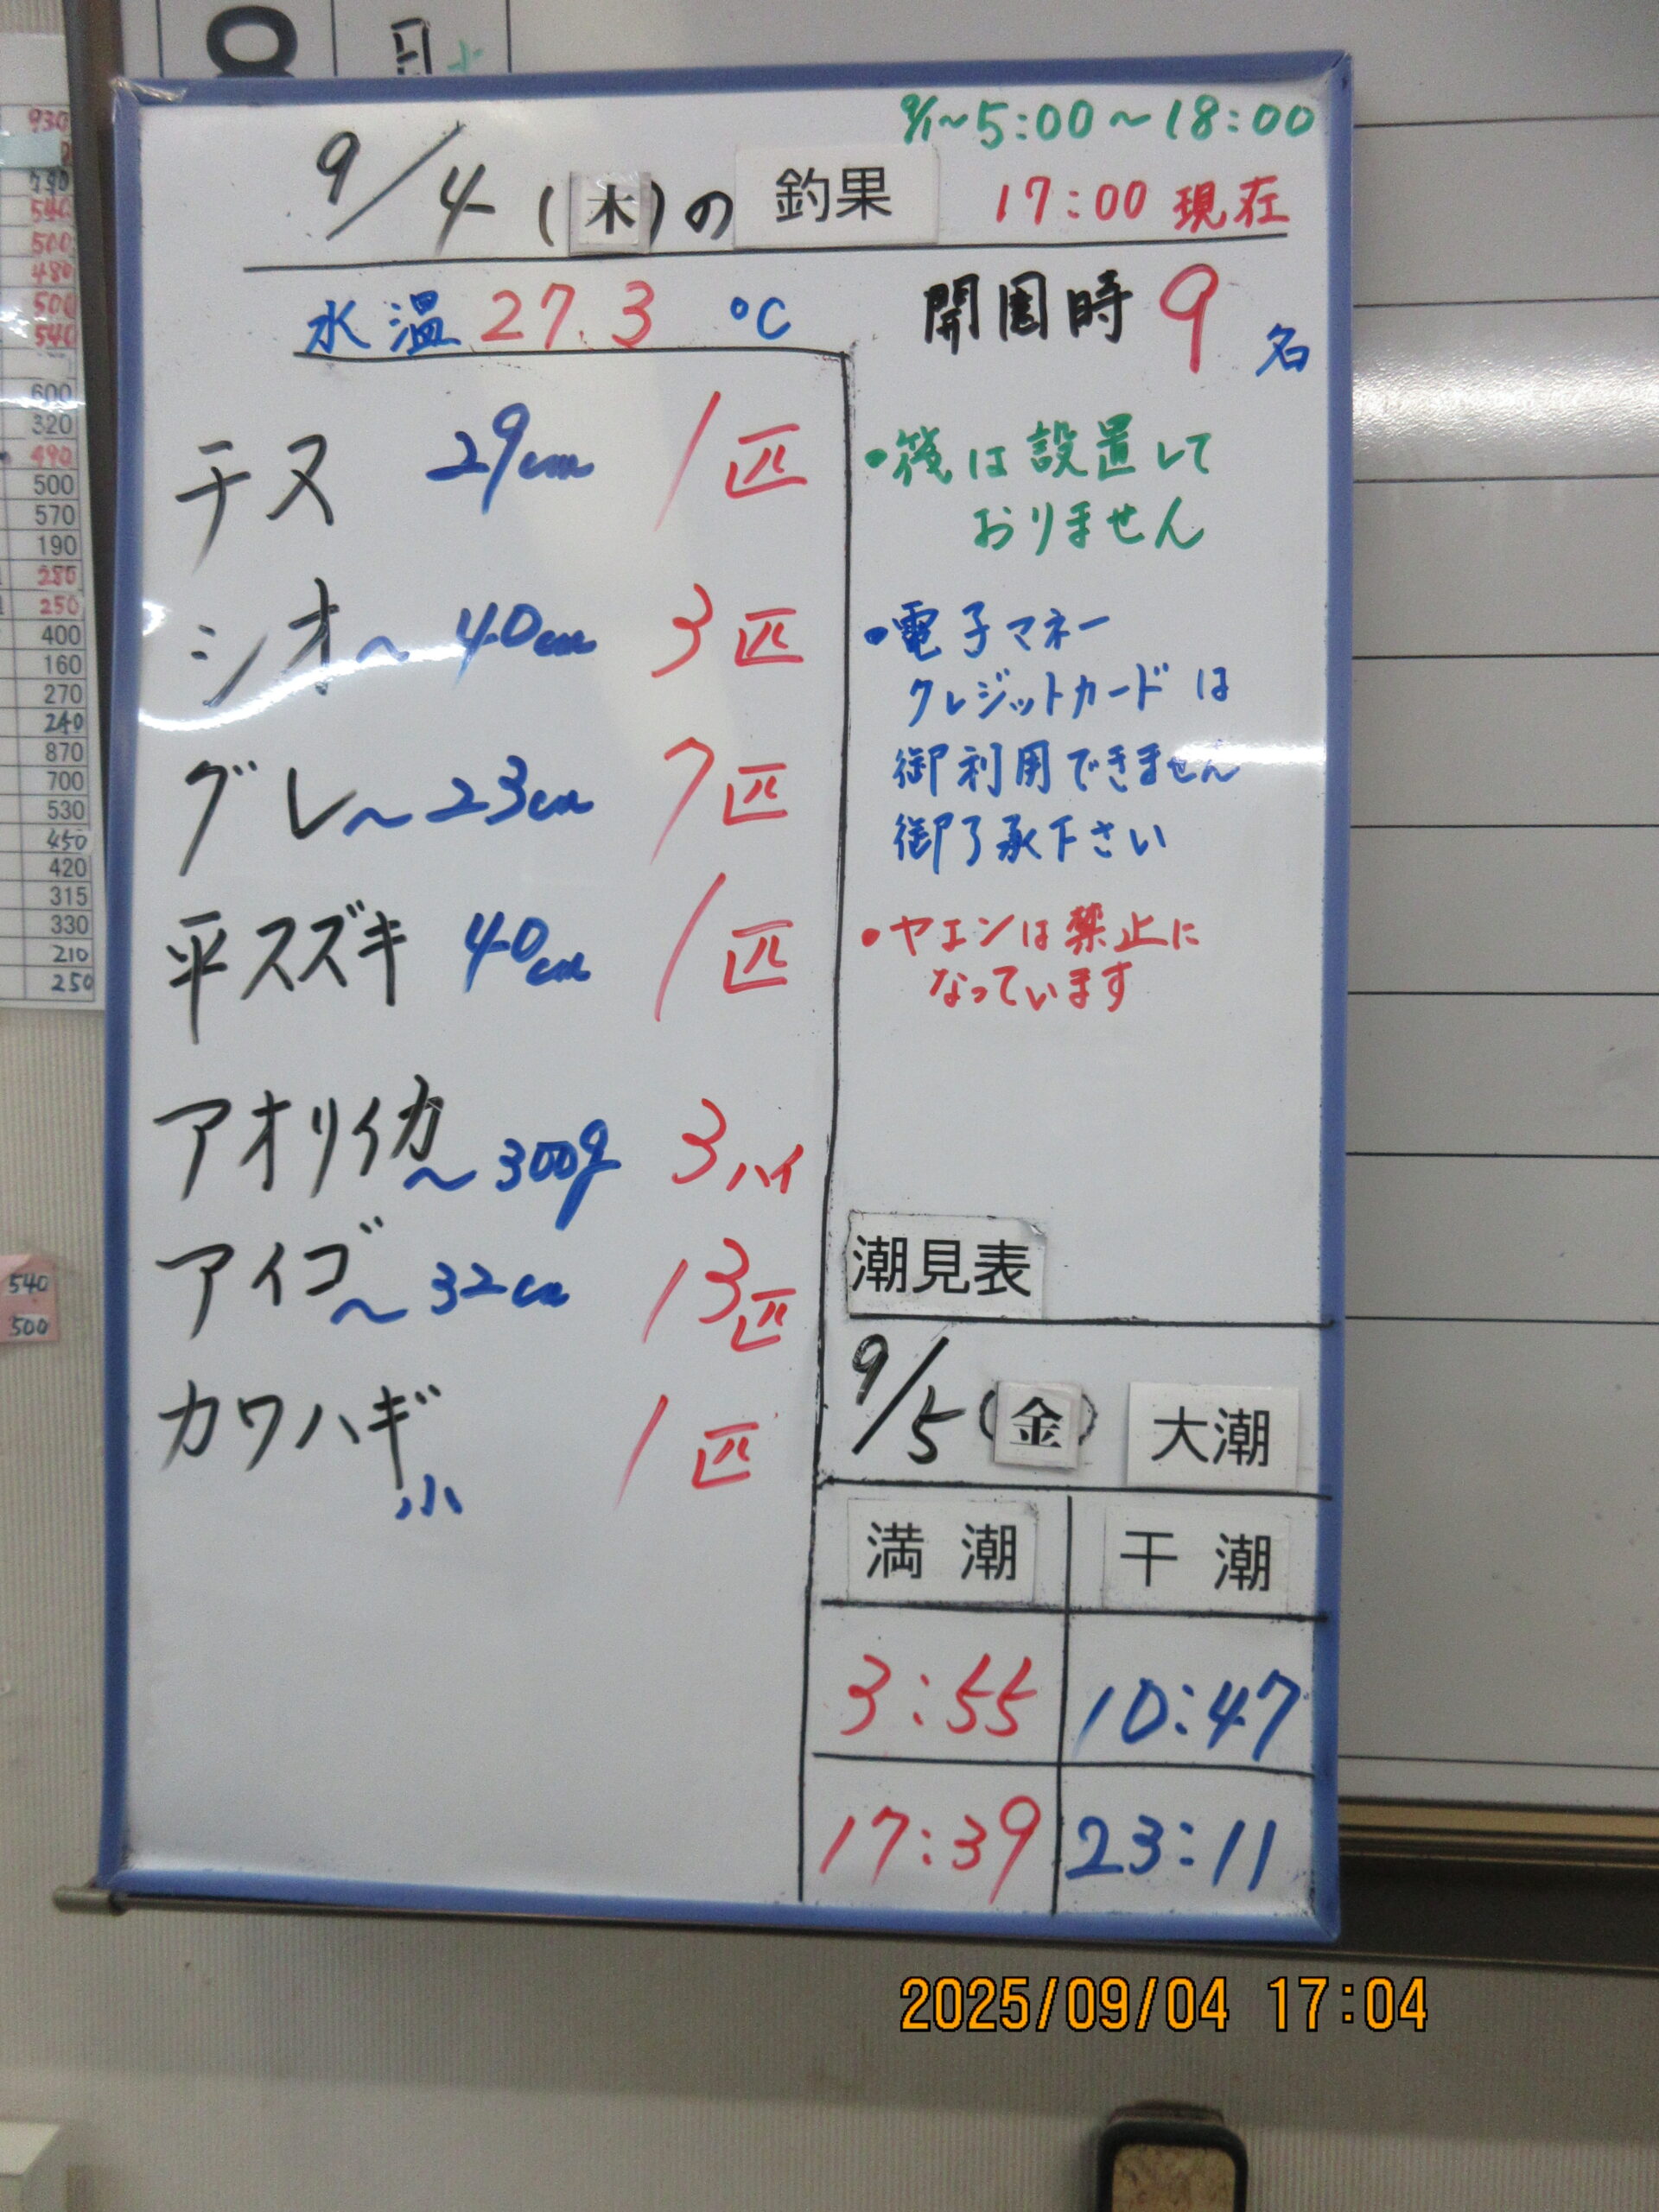 8月
9/1~5:00~18:00
9/4(木)の 釣果 17:00 現在
水温 27.3 ℃
開園時 9 名
チヌ 29cm 1匹
シオ~40cm 3匹
グレ~23cm 7匹
平スズキ 40cm 1匹
アオリイカ~300g 3ハイ
アイゴ~32cm 13匹
カワハギ小 1匹
・筏は設置して
おりません
・電子マネー
クレジットカードは
御利用できません
御了承下さい
・ヤエンは禁止に
なっています
潮見表
9/5(金) 大潮
満潮 干潮
3:55 10:47
17:39 23:11
930
790
540
500
480
500
540
600
320
490
500
570
190
280
250
400
160
270
240
870
700
530
450
420
315
330
210
250
540
500
2025/09/04 17:04